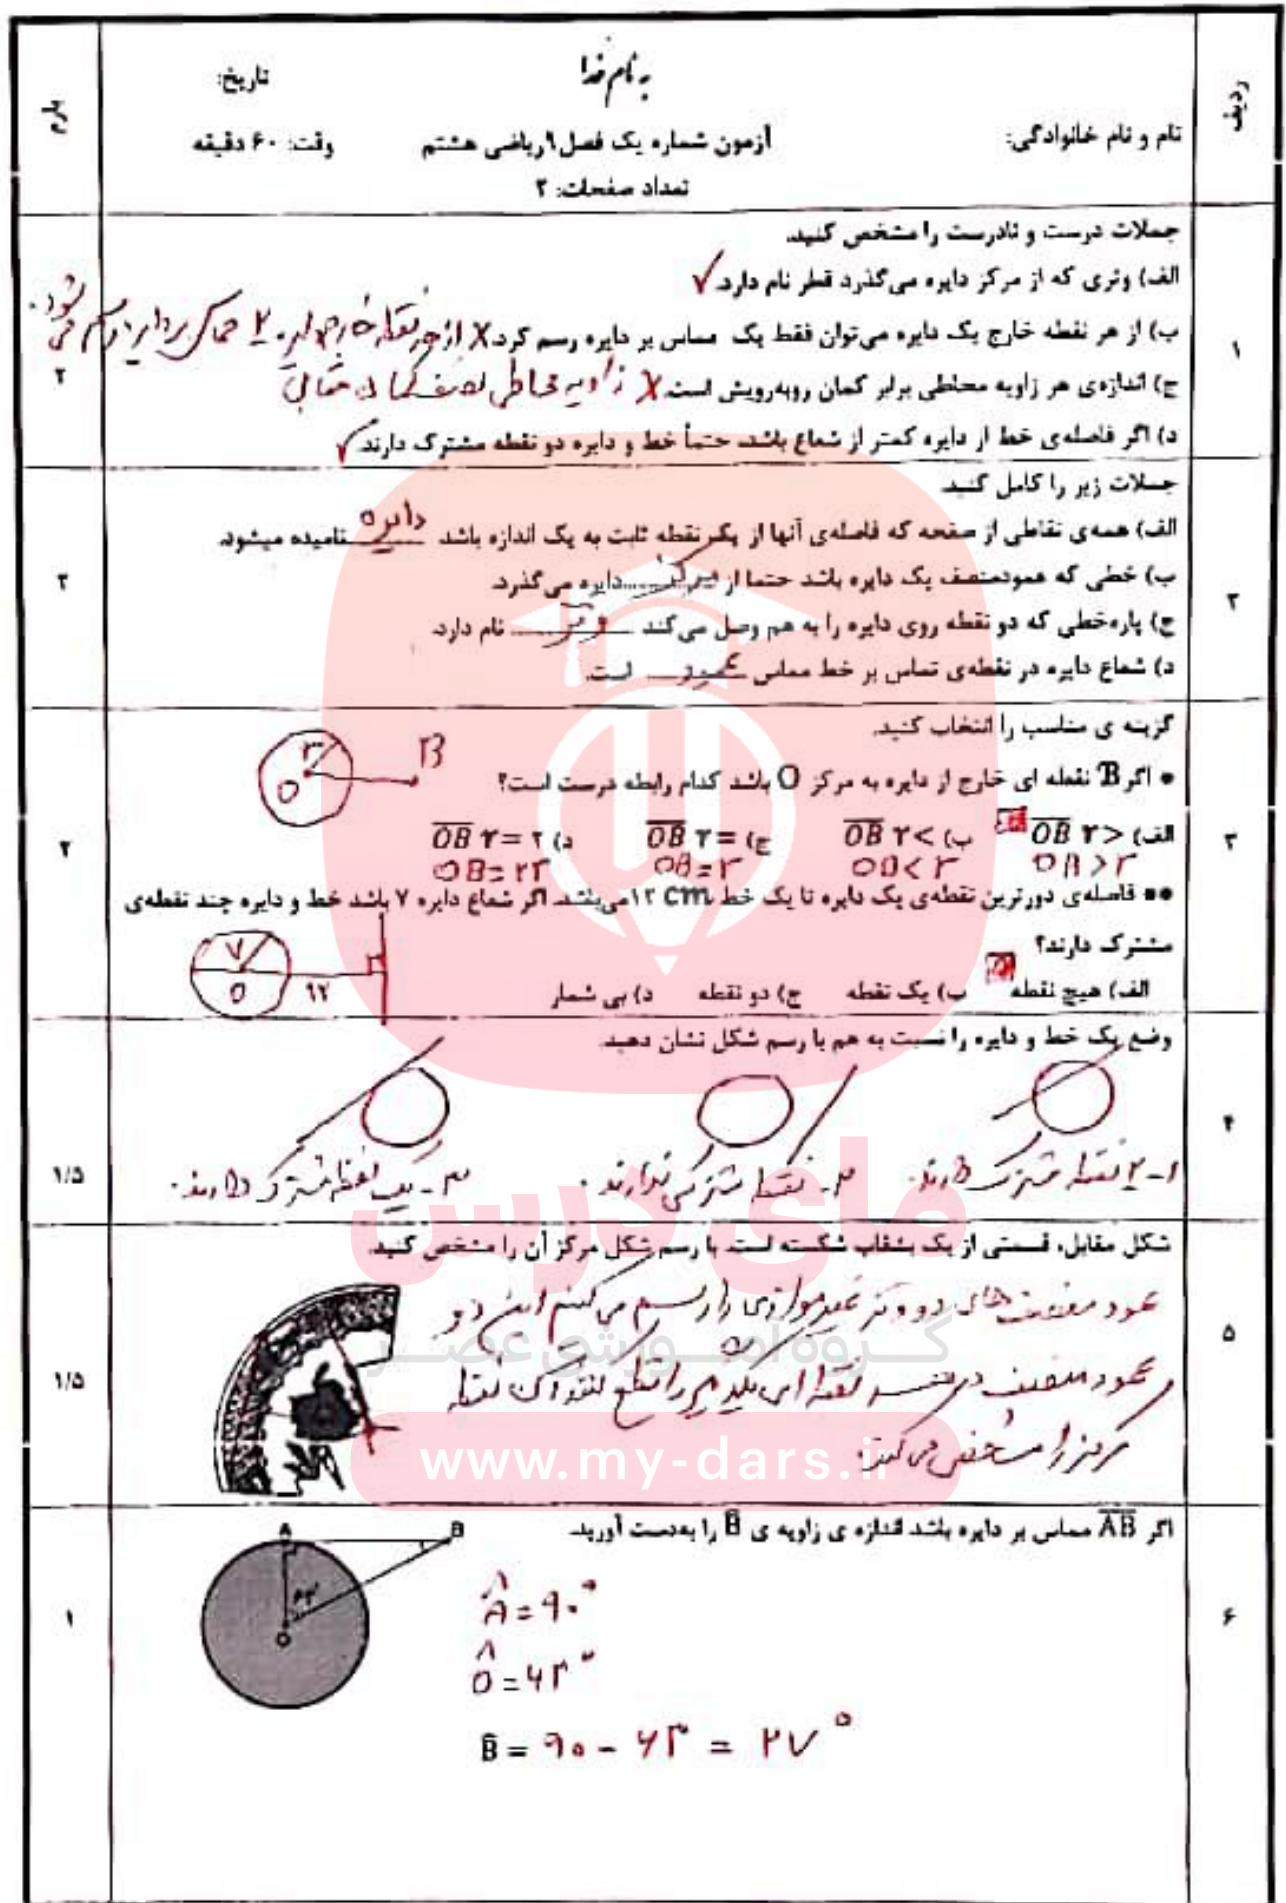 ردیف
بارم
به نام خدا
نام و نام خانوادگی:
تاریخ:
آزمون شماره یک فصل ۹ ریاضی هشتم
وقت: ۶۰ دقیقه
تعداد صفحات: ۲
جملات درست و نادرست را مشخص کنید.
الف) وتری که از مرکز دایره می‌گذرد قطر نام دارد. ✓
ب) از هر نقطه خارج یک دایره می‌توان فقط یک مماس بر دایره رسم کرد. X از هر نقطه خارج دایره ۲ مماس بر دایره رسم می شود.
۱
ج) اندازه‌ی هر زاویه محاطی برابر کمان روبه‌رویش است. X زاویه محاطی نصف کمان مقابل
۲
د) اگر فاصله‌ی خط از دایره کمتر از شعاع باشد، حتماً خط و دایره دو نقطه مشترک دارند. ✓
جملات زیر را کامل کنید.
الف) همه‌ی نقاطی از صفحه که فاصله‌ی آنها از یک نقطه ثابت به یک اندازه باشد دایره نامیده میشود.
ب) خطی که عمودمنصف یک دایره باشد حتما از مرکز دایره می‌گذرد.
۲
۲
ج) پاره‌خطی که دو نقطه روی دایره را به هم وصل می‌کند وتر نام دارد.
د) شعاع دایره در نقطه‌ی تماس بر خط مماس عمود است.
گزینه ی مناسب را انتخاب کنید.
۳
O
B
• اگر B نقطه ای خارج از دایره به مرکز O باشد کدام رابطه درست است؟
۳
الف) OB ۳ <
ب) OB ۳ >
ج) OB ۳ =
د) OB ۳ = ۲
۲
OB > ۳
OB < ۳
OB = ۳
OB = ۲۳
•• فاصله‌ی دورترین نقطه‌ی یک دایره تا یک خط ۱۲ cm می‌باشد. اگر شعاع دایره ۷ باشد خط و دایره چند نقطه‌ی
مشترک دارند؟
۷
O
۱۲
الف) هیچ نقطه
ب) یک نقطه
ج) دو نقطه
د) بی شمار
وضع یک خط و دایره را نسبت به هم با رسم شکل نشان دهید.
۴
۱/۵
۱- ۲ نقطه مشترک دارند.
۲- نقطه مشترکی ندارند.
۳- یک نقطه مشترک دارند.
شکل مقابل، قسمتی از یک بشقاب شکسته است. با رسم شکل مرکز آن را مشخص کنید.
عمود منصف های دو وتر غیر موازی را رسم می کنیم این دو
۵
۱/۵
عمود منصف در نقطه ای یکدیگر را قطع کنند آن نقطه
مرکز را مشخص می کند.
گروه آموزشی عصر
مای درس
www.my-dars.ir
اگر AB مماس بر دایره باشد اندازه ی زاویه ی B̂ را به‌دست آورید.
A
B
۶۳
O
۶
۱
Â = ۹۰°
Ô = ۶۳°
B̂ = ۹۰ - ۶۳ = ۲۷°